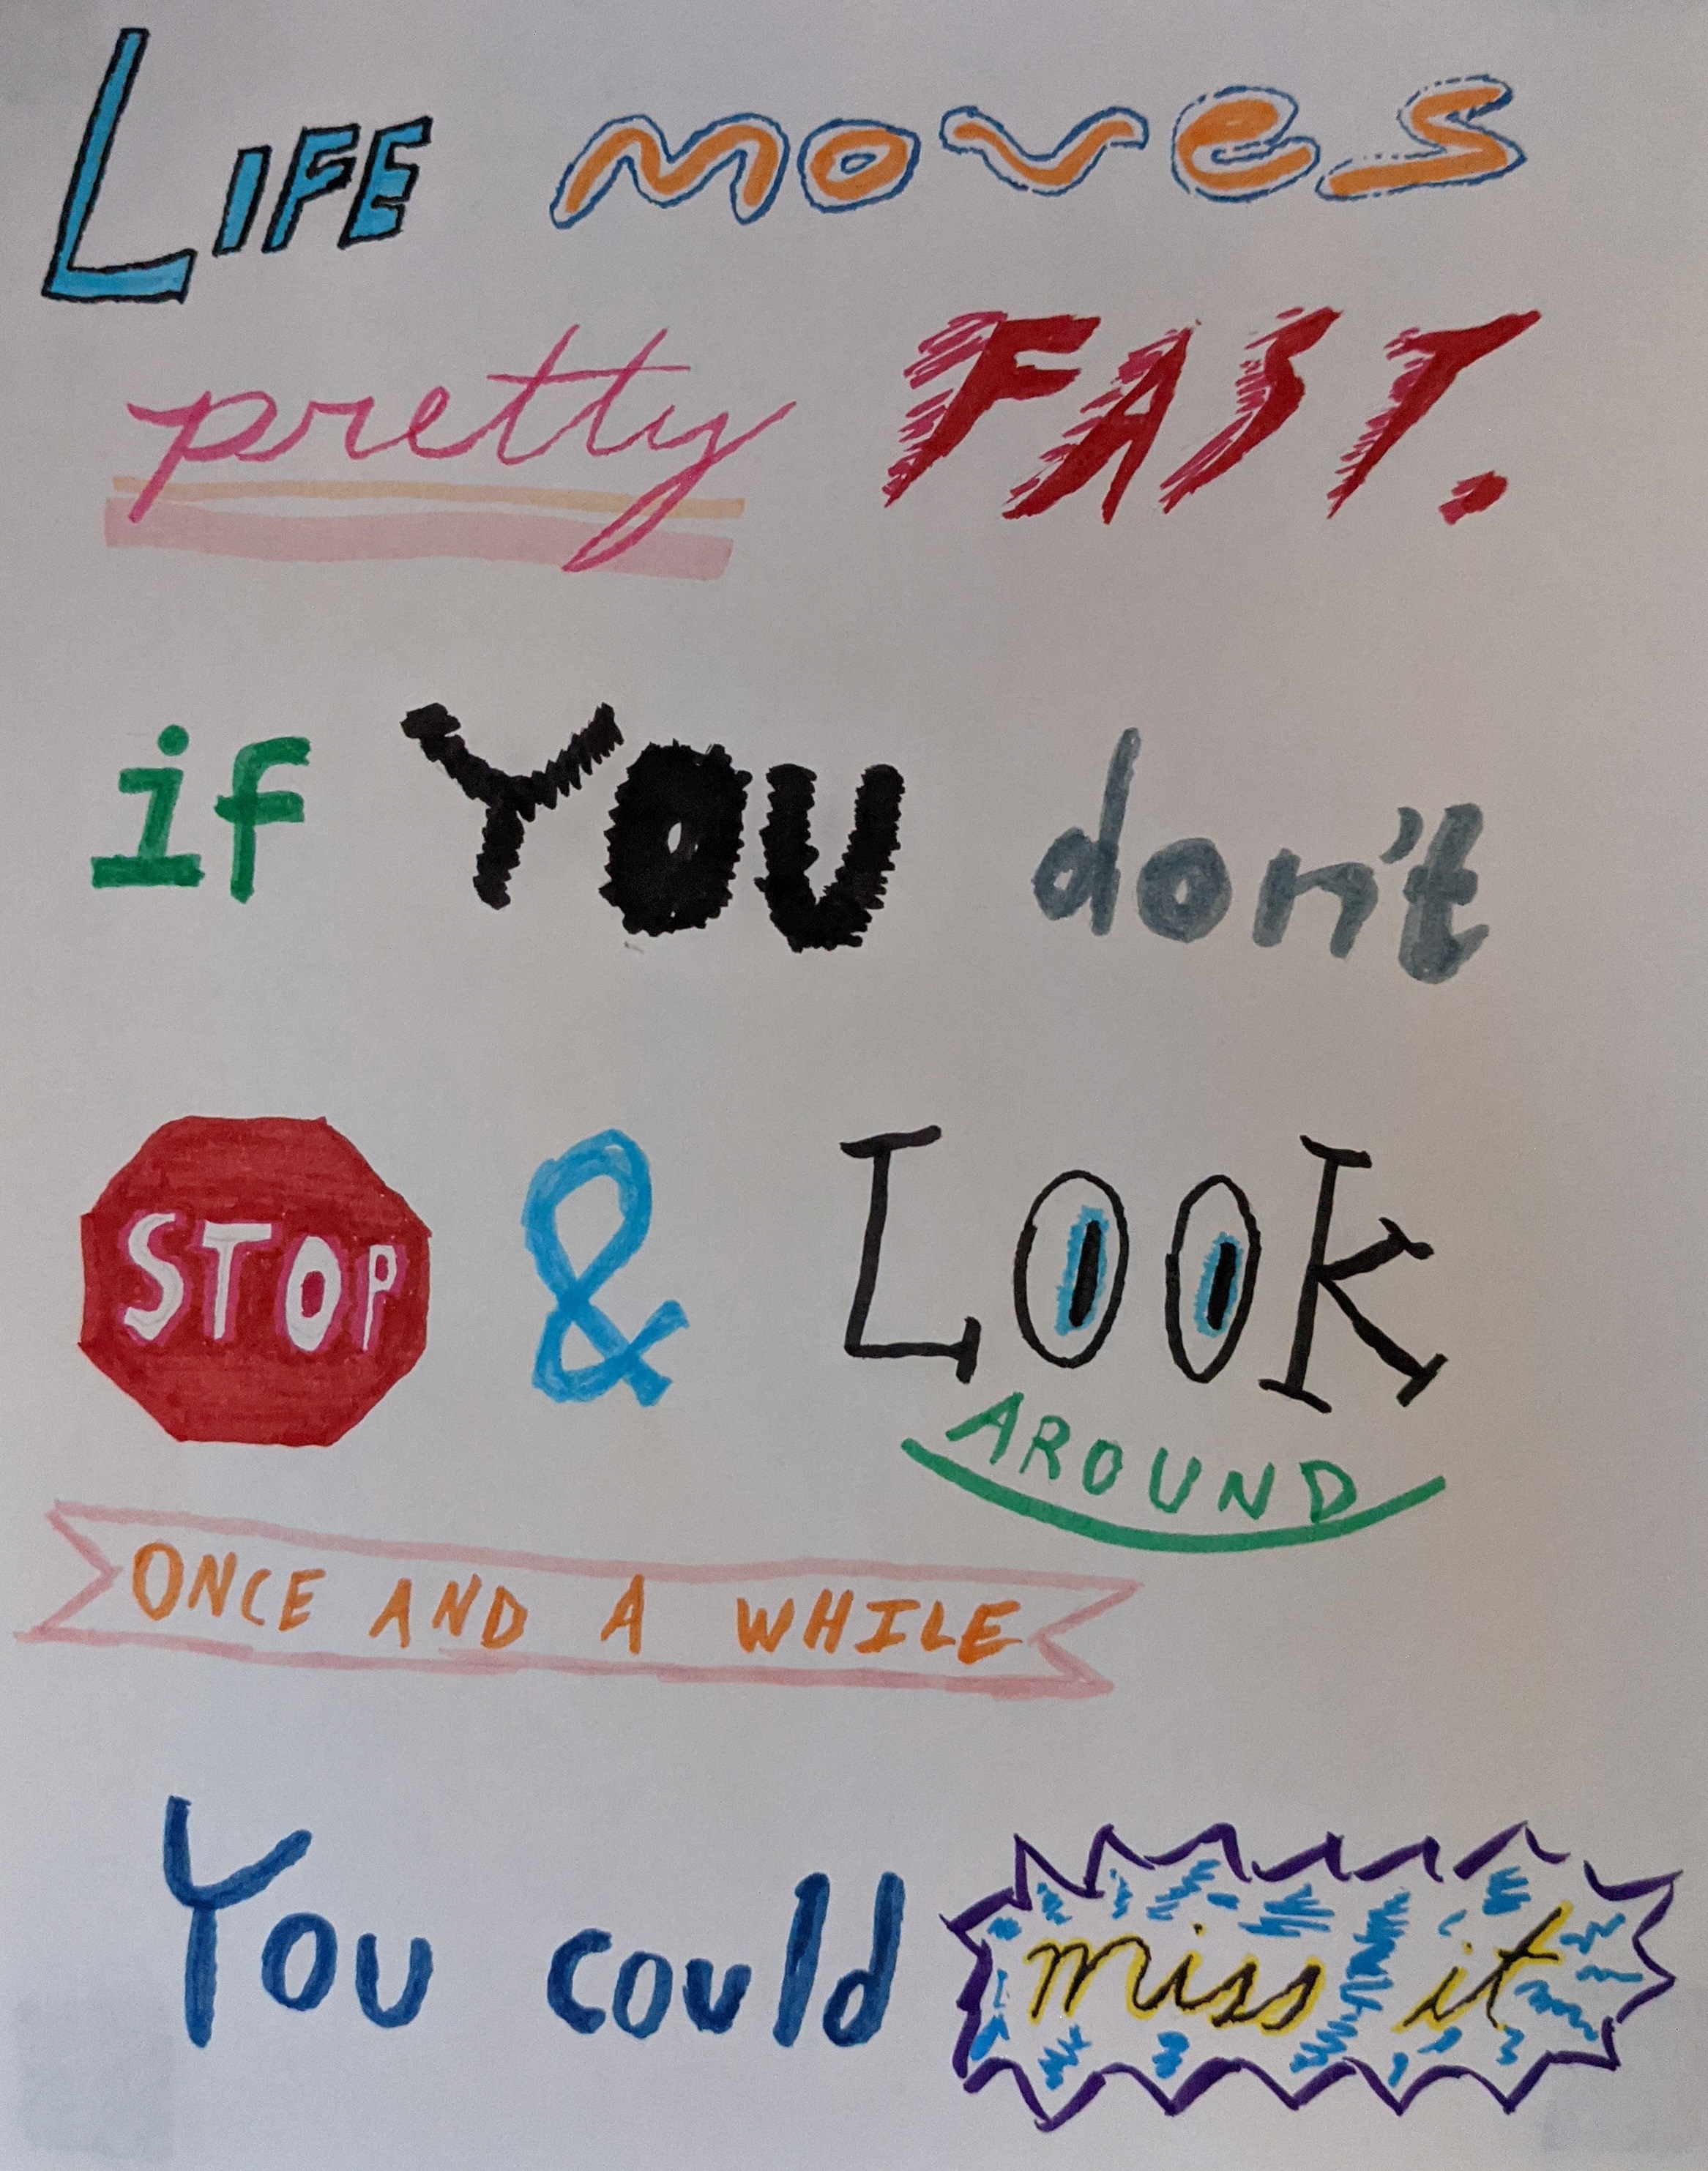 LIFE moves
pretty FAST.
if YOU don't
STOP & LOOK
AROUND
ONCE AND A WHILE
You could miss it